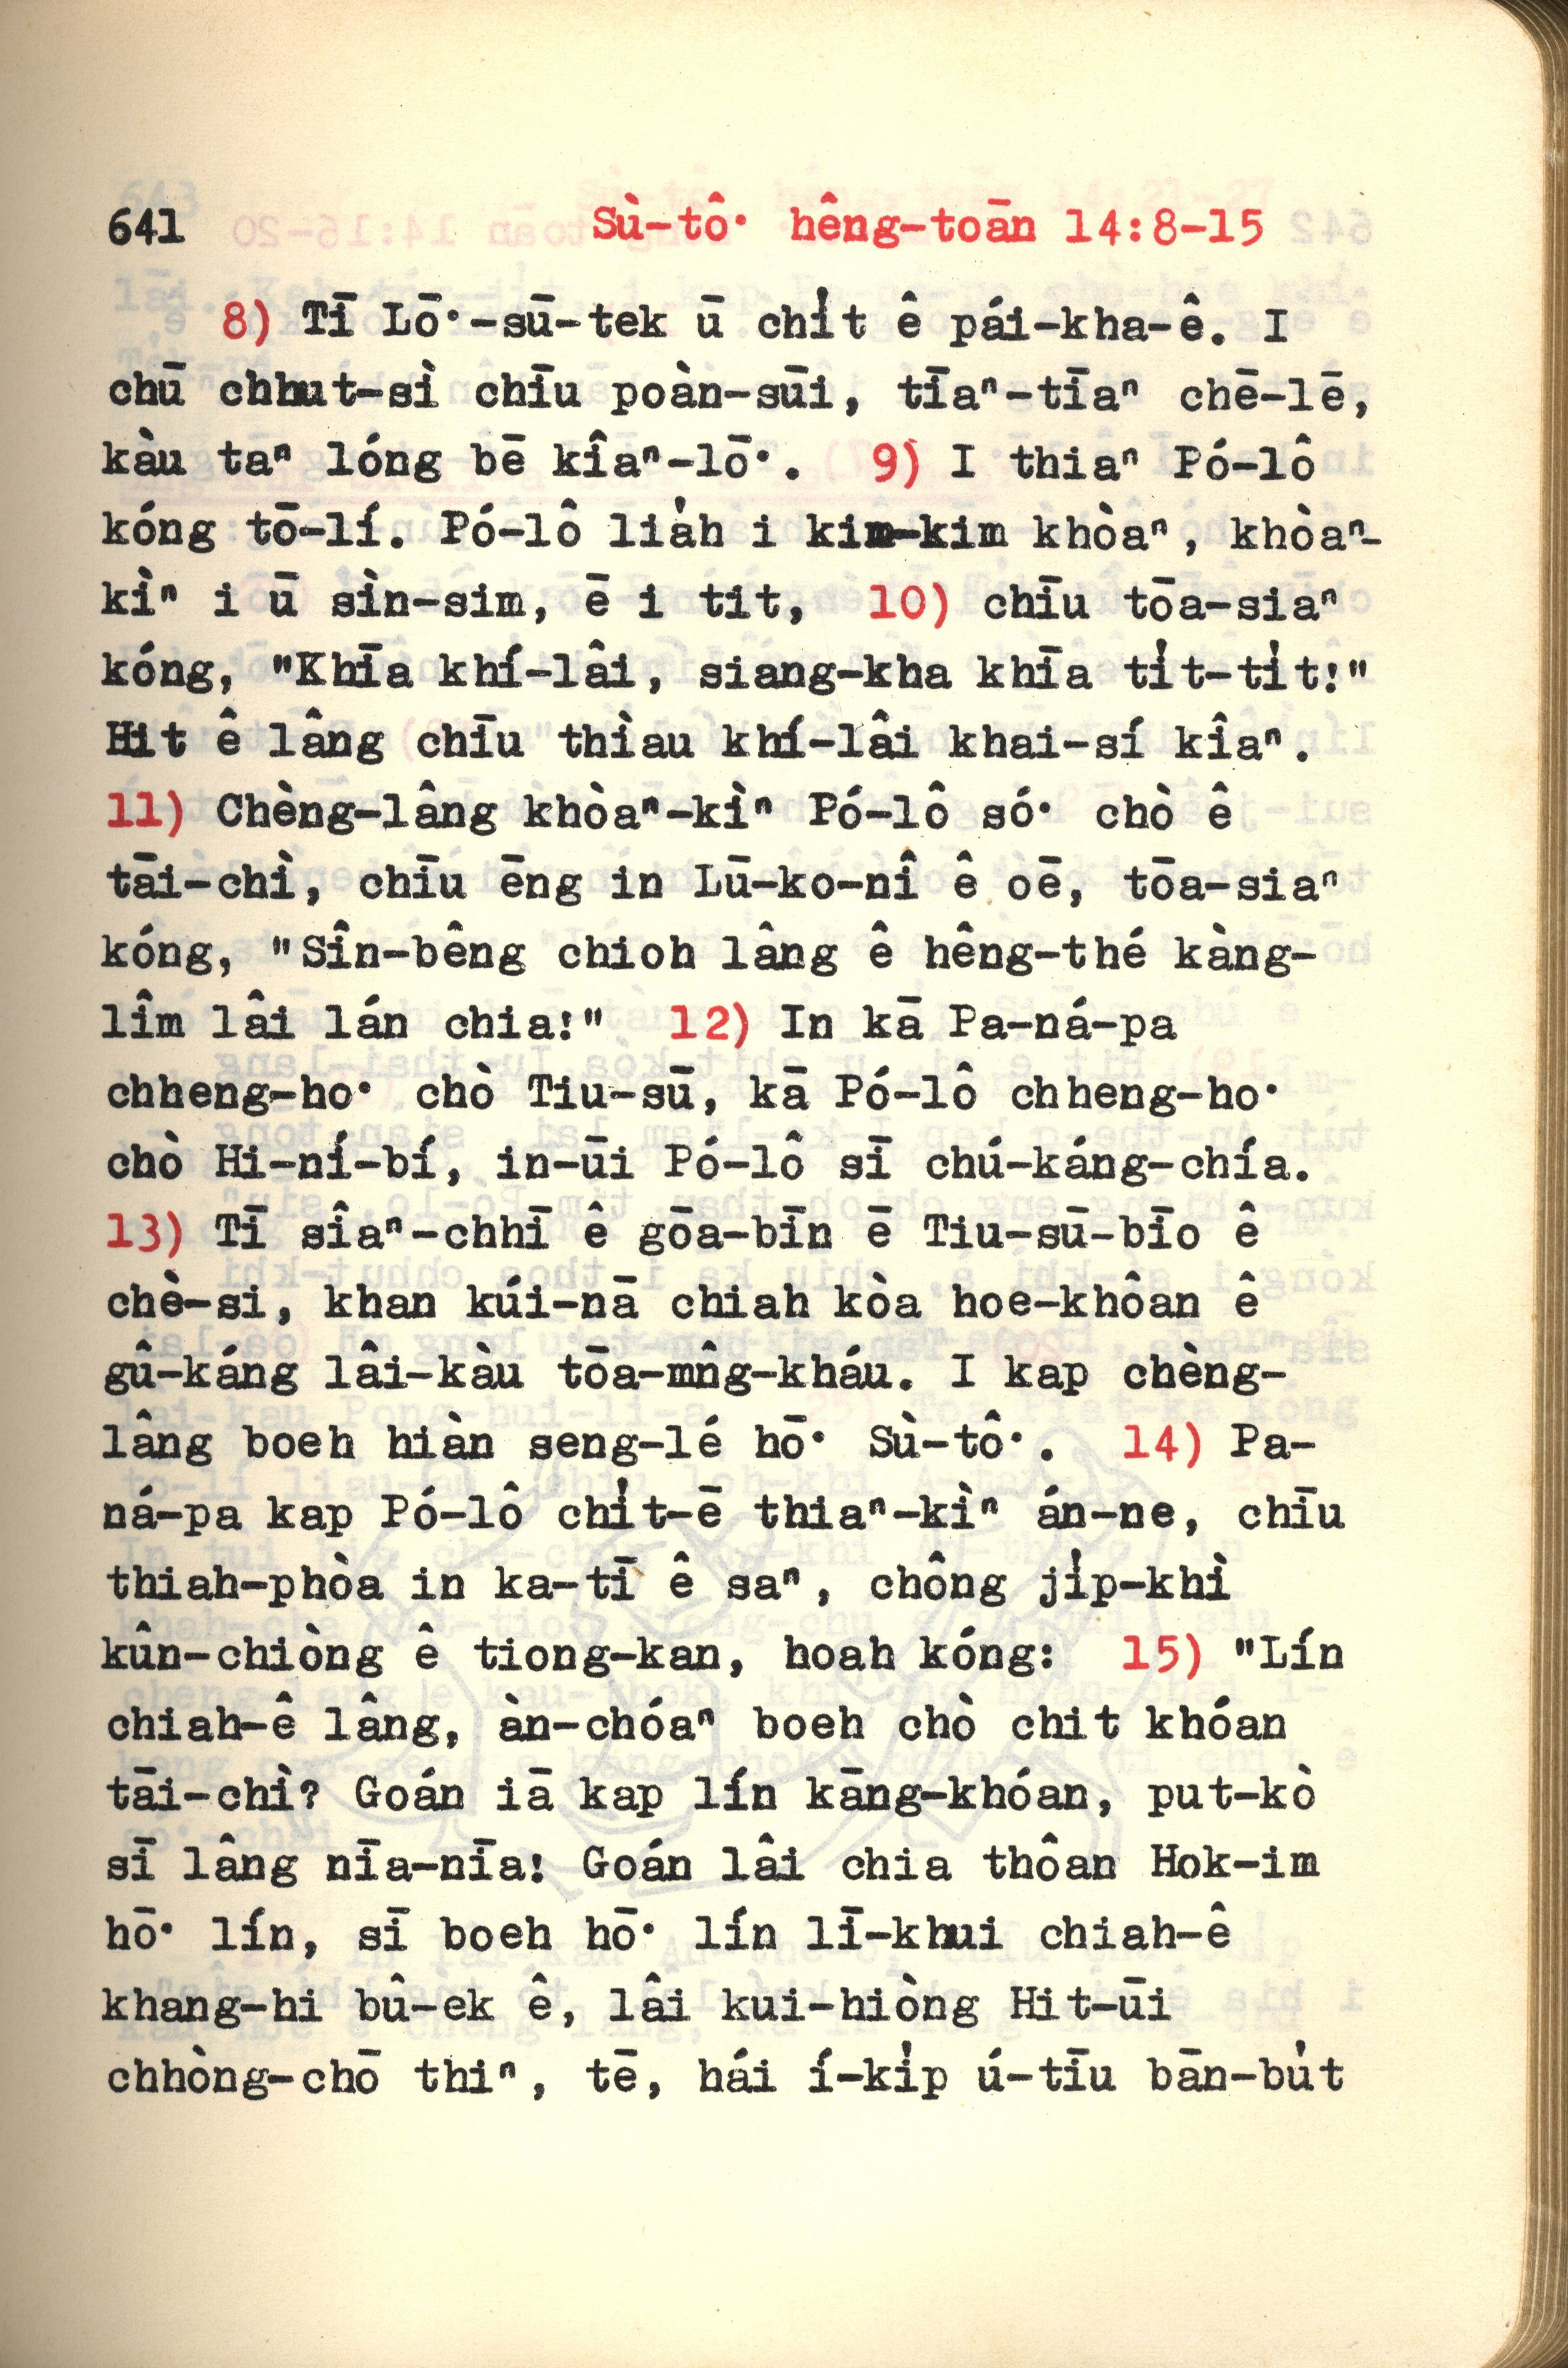 641 Sù-tô͘ hêng-toān 14:8-15
8) Tī Lō͘-sū-tek ū chi̍t ê pái-kha-ê. I
chū chhut-sì chīu poàn-sūi, tīaⁿ-tīaⁿ chē-lē,
kàu taⁿ lóng bē kîaⁿ-lō͘. 9) I thiaⁿ Pó-lô
kóng tō-lí. Pó-lô lia̍h i kim-kim khòaⁿ, khòaⁿ-
kìⁿ i ū sìn-sim, ē i tit, 10) chīu tōa-siaⁿ
kóng, "Khīa khí-lâi, siang-kha khīa ti̍t-ti̍t!"
Hit ê lâng chīu thìau khí-lâi khai-sí kîaⁿ.
11) Chèng-lâng khòaⁿ-kìⁿ Pó-lô só͘ chò ê
tāi-chì, chīu ēng in Lū-ko-nî ê oē, tōa-siaⁿ
kóng, "Sîn-bêng chioh lâng ê hêng-thé kàng-
lîm lâi lán chia!" 12) In kā Pa-ná-pa
chheng-ho͘ chò Tiu-sū, kā Pó-lô chheng-ho͘
chò Hi-ní-bí, in-ūi Pó-lô sī chú-káng-chía.
13) Tī sîaⁿ-chhī ê gōa-bīn ē Tiu-sū-bīo ê
chè-si, khan kúi-nā chiah kòa hoe-khôan ê
gû-káng lâi-kàu tōa-mn̂g-kháu. I kap chèng-
lâng boeh hiàn seng-lé hō͘ Sù-tô͘. 14) Pa-
ná-pa kap Pó-lô chi̍t-ē thiaⁿ-kìⁿ án-ne, chīu
thiah-phòa in ka-tī ê saⁿ, chông ji̍p-khì
kûn-chiòng ê tiong-kan, hoah kóng: 15) "Lín
chiah-ê lâng, àn-chóaⁿ boeh chò chit khóan
tāi-chì? Goán iā kap lín kāng-khóan, put-kò
sī lâng nīa-nīa! Goán lâi chia thôan Hok-im
hō͘ lín, sī boeh hō͘ lín lī-khui chiah-ê
khang-hi bû-ek ê, lâi kui-hiòng Hit-ūi
chhòng-chō thiⁿ, tē, hái í-ki̍p ú-tīu bān-bu̍t